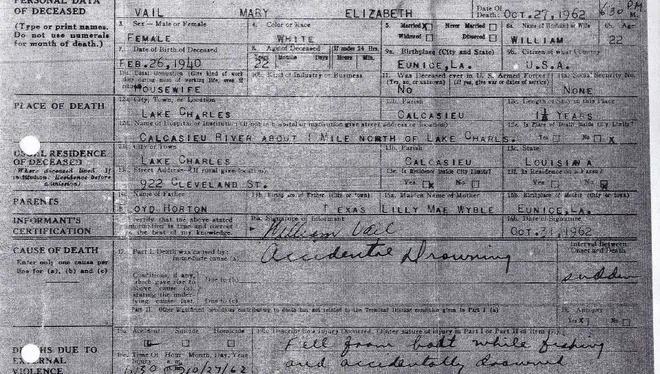 PERSONAL DATA OF DECEASED
(Type or print names. Do not use numerals for month of death.)
VAIL MARY ELIZABETH Date Of Death: OCT.27,1962
3. Sex - Male or Female 4. Color or Race 5. Married X Never Married Widowed Divorced 6a. Name of Husband or Wife 6b. Age
FEMALE WHITE WILLIAM 22
7. Date of Birth of Deceased 8. Age of Deceased If under 24 Hrs. 9a. Birthplace (City and State)
FEB.26,1940 22 EUNICE,LA. U.S.A.
10b. Kind of Industry or Business 11. Was Deceased ever in U. S. Armed Forces?
HOUSEWIFE NO NONE
PLACE OF DEATH
12a. City, Town, or Location 12b. Parish
LAKE CHARLES CALCASIEU 1½ YEARS
CALCASIEU RIVER ABOUT 1 MILE NORTH OF LAKE CHARLS.
USUAL RESIDENCE OF DECEASED
(Where deceased lived. If institution: Residence before admission)
13a. City or Town 13b. Parish 13c. State
LAKE CHARLES CALCASIEU LOUISIANA
13d. Street Address 13e. Is Residence Inside City Limits?
922 CLEVELAND ST. Yes X No
PARENTS
14a. Name of Father 15a. Maiden Name of Mother
LOYD HORTON TEXAS LILLY MAE WYBLE EUNICE,LA.
INFORMANT'S CERTIFICATION
I certify that the above stated information is true and correct to the best of my knowledge.
16a. Signature of Informant 16b. Date of Signature
William Vail OCT.31,1962
CAUSE OF DEATH
Enter only one cause per line for (a), (b) and (c)
17. Part I. Death was caused by: Interval Between Onset and Death
Immediate cause (a)
Accidental Drowning sudden
Conditions, if any, which gave rise to above cause (a), stating the underlying cause
Due to (b)
Due to (c)
Part II. Other Significant Conditions contributing to death but not related to the Terminal Disease condition given in Part I (a)
18. Autopsy
DEATHS DUE TO EXTERNAL VIOLENCE
Accident Suicide Homicide
Fell from boat while fishing
and accidentally drowned
10/27/62